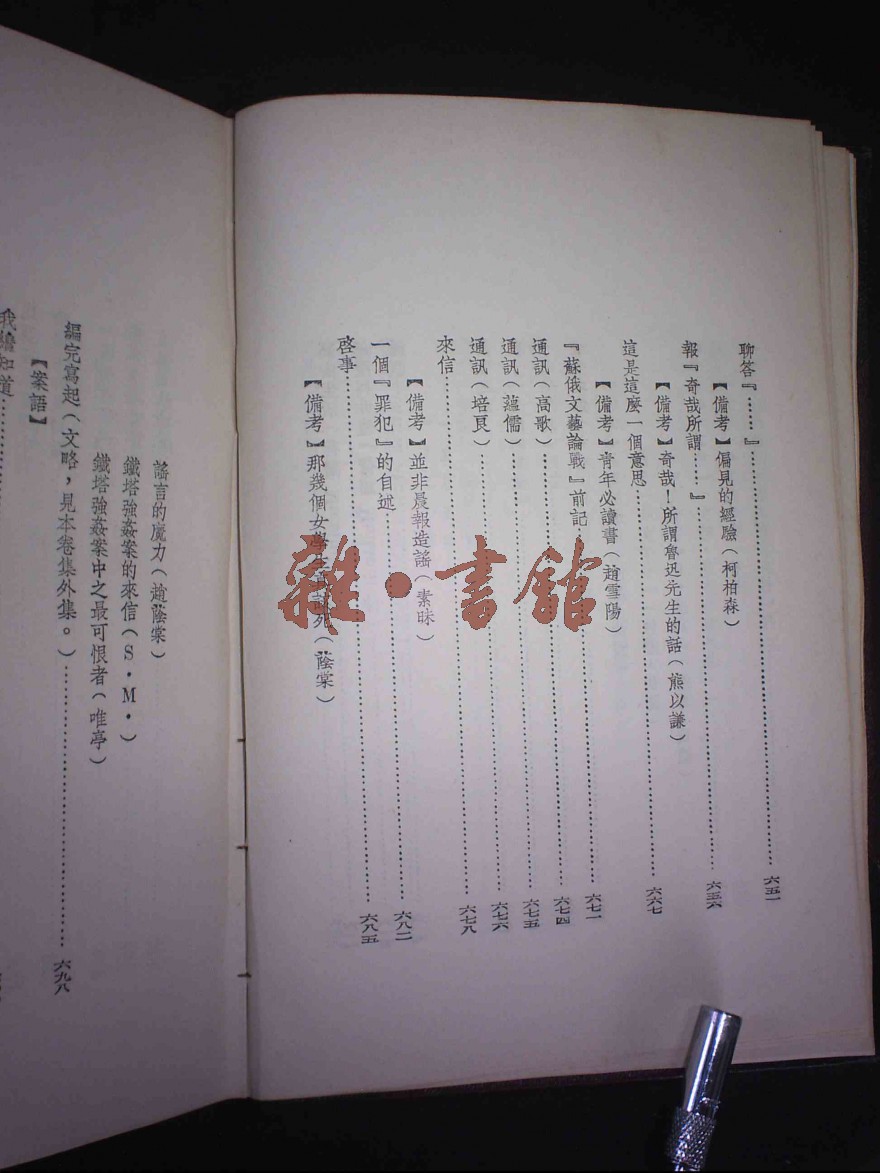 聊答『……』……六五一
【備考】偏見的經驗(柯柏森)
報『奇哉所謂……』……六五六
【備考】奇哉!所謂魯迅先生的話(熊以謙)
這是這麼一個意思……六六七
【備考】青年必讀書(趙雪陽)
『蘇俄文藝論戰』前記……六七一
通訊(高歌)……六七四
通訊(蘊儒)……六七五
通訊(培良)……六七六
來信……六七八
【備考】並非晨報造謠(素昧)
一個『罪犯』的自述……六八二
啓事……六八五
【備考】那幾個女學生該死(蔭棠)
謠言的魔力(趙蔭棠)
鐵塔強姦案的來信(S・M・)
鐵塔強姦案中之最可恨者(唯亭)
編完寫起(文略,見本卷集外集。)……六九八
【案語】
我纔知道……
雜·書館